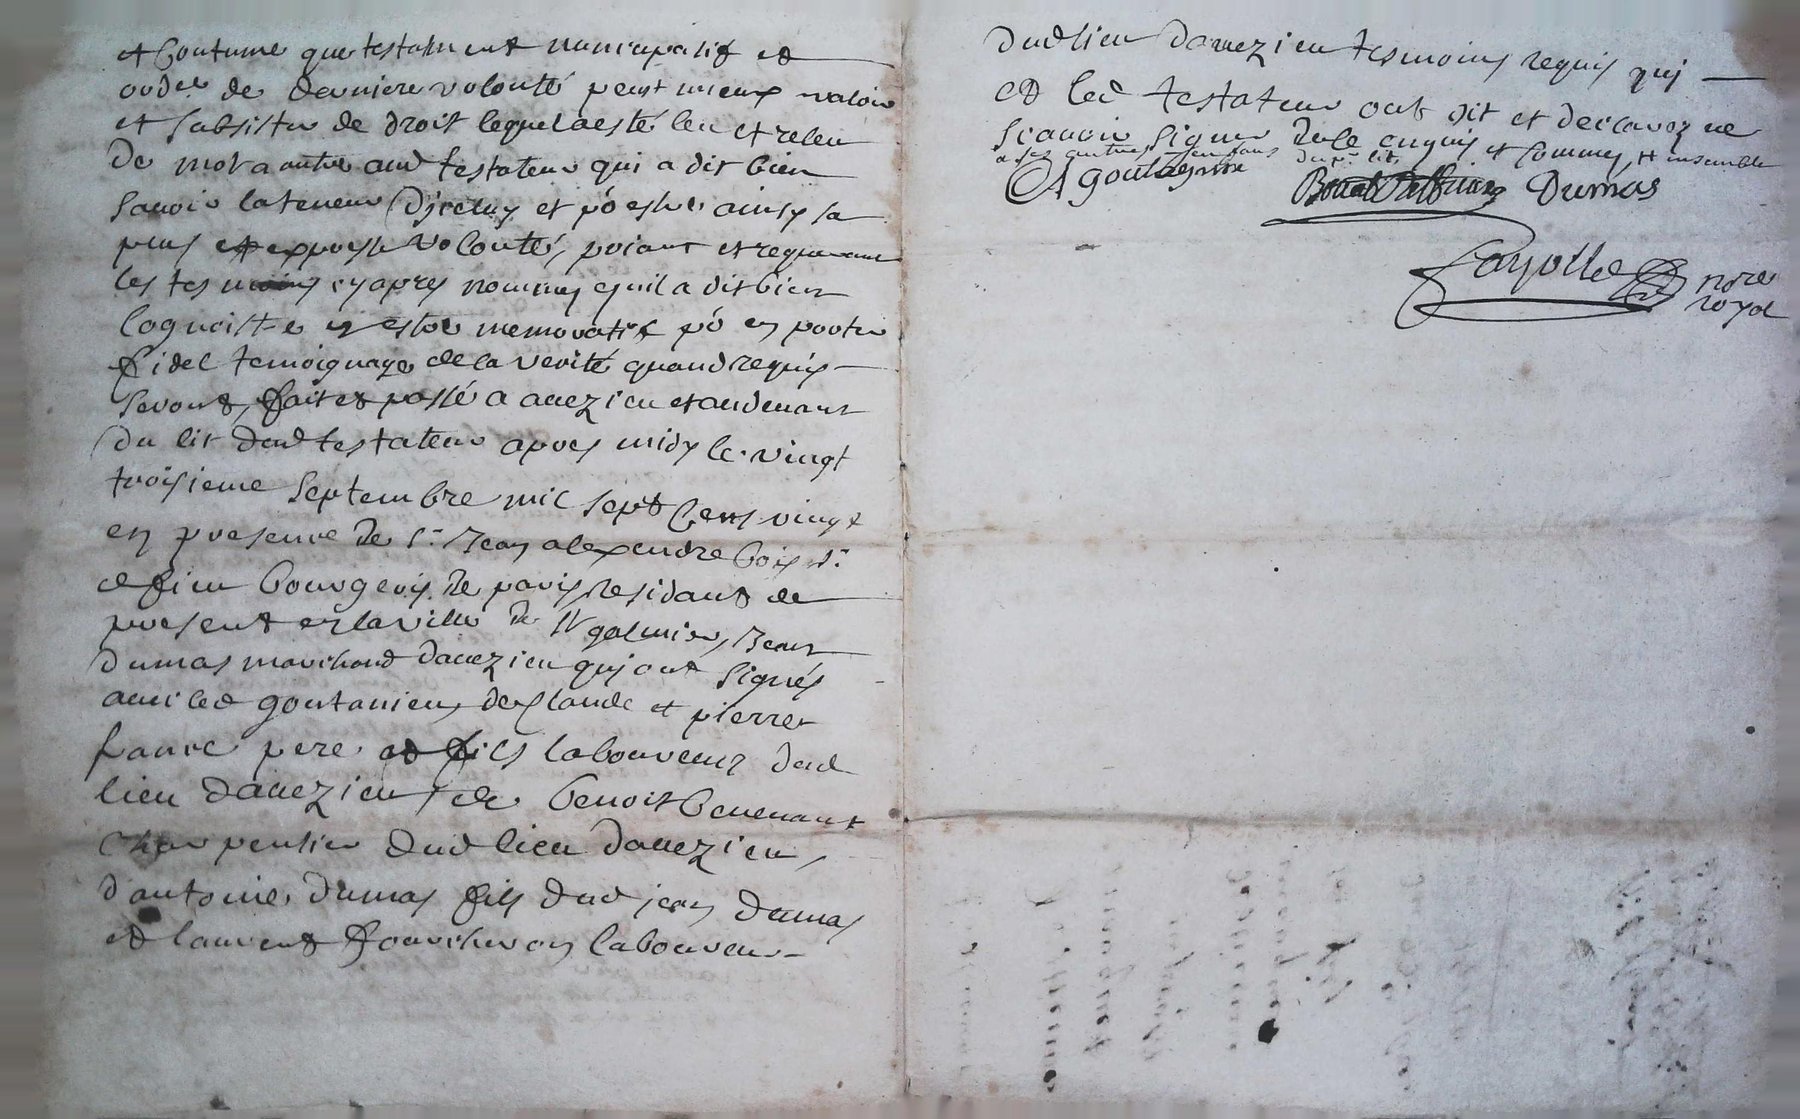 et Coutume que testament nuncupatif et
ordre de derniere volonté peut mieux valoir
et subsister de droit lequel a esté leu et releu
de mot a autre aud testateur qui a dit bien
savoir la teneur d'iceluy et po estre ainsy sa
pure et expresse volonté, priant et requerant
les tesmoins cy apres nommes quil a dit bien
Cognoistre en estre memoratif po en porter
fidel temoignage de la verité quand requis
seront, fait et passé a avezieu et au devant
du lit dud testateur apres midy le vingt
troisieme septembre mil sept Cens vingt
en presence de sr Jean alexendre Bois sr
de fieu bourgeois de paris residant de
present en la ville de st galmier, Jean
dumas marchand davezieu qui ont signés
avec led goutanieu de Claude et pierre
favre pere et fils laboureurs dud
lieu davezieu de benoit benevant
Charpentier dud lieu davezieu,
d'antoine dumas fils dud jean dumas
et laurent fourcheron laboureur
dud lieu davezieu tesmoins requis qui
et led testateur ont dit et declarez ne
scavoir signer de ce enquis et sommes, et ensemble
a ses autres enfans du lit
Dumas
Fayolle nore
royal